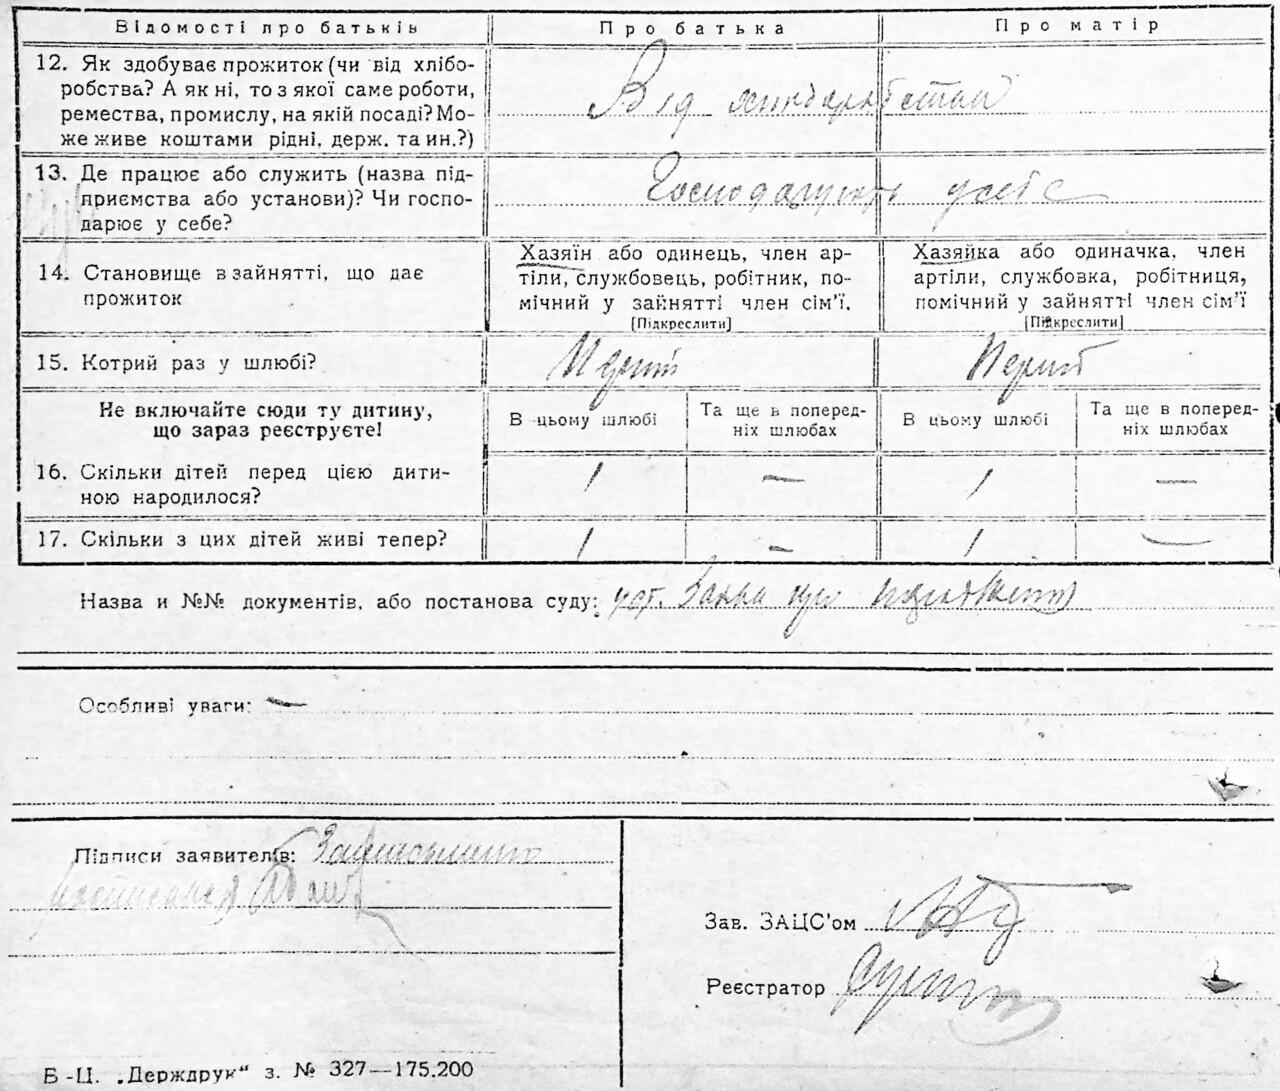 Відомості про батьків
Про батька
Про матір
12. Як здобуває прожиток (чи від хлібо-
робства? А як ні, то з якої саме роботи,
ремества, промислу, на якій посаді? Мо-
же живе коштами рідні, держ. та ин.?)
Від хліборобства
13. Де працює або служить (назва під-
приємства або установи)? Чи госпо-
дарює у себе?
Господарюють у себе
14. Становище в зайнятті, що дає
прожиток
Хазяїн або одинець, член ар-
тіли, службовець, робітник, по-
мічний у зайнятті член сім'ї.
[Підкреслити]
Хазяйка або одиначка, член
артіли, службовка, робітниця,
помічний у зайнятті член сім'ї
[Підкреслити]
15. Котрий раз у шлюбі?
Не включайте сюди ту дитину,
що зараз реєструєте!
В цьому шлюбі
Та ще в поперед-
ніх шлюбах
В цьому шлюбі
Та ще в поперед-
ніх шлюбах
16. Скільки дітей перед цією дити-
ною народилося?
1 — 1 —
17. Скільки з цих дітей живі тепер?
1 — 1 —
Назва и №№ документів, або постанова суду:
Особливі уваги: —
Підписи заявителів:
Зав. ЗАЦС'ом
Реєстратор
Б-Ц. „Держдрук“ з. № 327—175.200